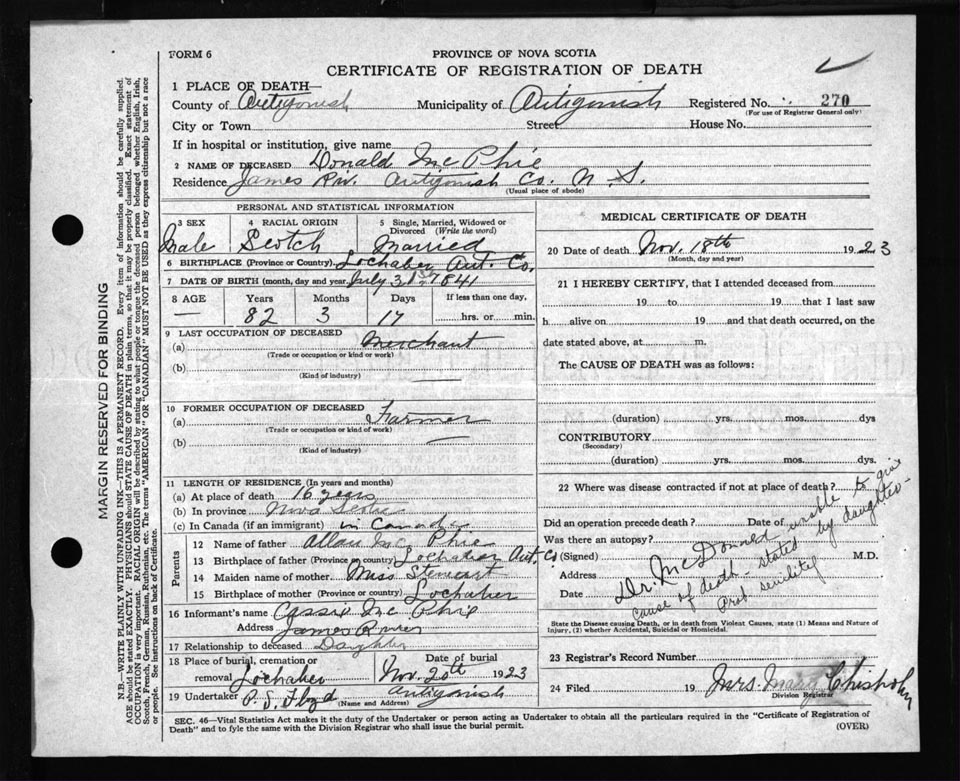 FORM 6
PROVINCE OF NOVA SCOTIA
CERTIFICATE OF REGISTRATION OF DEATH
1 PLACE OF DEATH—
County of Antigonish Municipality of Antigonish Registered No. 270
(For use of Registrar General only)
City or Town Street House No.
If in hospital or institution, give name
2 NAME OF DECEASED Donald Mc Phie
Residence James Riv. Antigonish Co. N. S.
(Usual place of abode)
PERSONAL AND STATISTICAL INFORMATION
3 SEX 4 RACIAL ORIGIN 5 Single, Married, Widowed or Divorced (Write the word)
Male Scotch Married
6 BIRTHPLACE (Province or Country) Lochaber Ant. Co.
7 DATE OF BIRTH (month, day and year) July 31st 1841
8 AGE Years Months Days If less than one day,
— 82 3 17 hrs. or min.
9 LAST OCCUPATION OF DECEASED
(a) Merchant
(Trade or occupation or kind of work)
(b)
(Kind of industry)
10 FORMER OCCUPATION OF DECEASED
(a) Farmer
(Trade or occupation or kind of work)
(b) —
(Kind of industry)
11 LENGTH OF RESIDENCE (In years and months)
(a) At place of death 16 years
(b) In province Nova Scotia
(c) In Canada (if an immigrant) in Canada
Parents
12 Name of father Allan Mc Phie
13 Birthplace of father (Province or country) Lochaber Ant. Co
14 Maiden name of mother Miss Stewart
15 Birthplace of mother (Province or Country) Lochaber
16 Informant's name Cassie Mc Phie
Address James River
17 Relationship to deceased Daughter
18 Place of burial, cremation or removal Lochaber Date of burial Nov. 20th 1923
19 Undertaker P. S. Floyd Antigonish
(Name and Address)
MEDICAL CERTIFICATE OF DEATH
20 Date of death Nov. 18th 1923
(Month, day and year)
21 I HEREBY CERTIFY, that I attended deceased from
19 to 19 that I last saw
h alive on 19 and that death occurred, on the
date stated above, at m.
The CAUSE OF DEATH was as follows:
(duration) yrs. mos. dys
CONTRIBUTORY
(Secondary)
(duration) yrs. mos. dys.
22 Where was disease contracted if not at place of death?
Did an operation precede death? Date of
Was there an autopsy?
(Signed) M.D.
Address
Date
Dr. McDonald unable to give
cause of death - stated by daughter -
Prob senility
State the Disease causing Death, or in death from Violent Causes, state (1) Means and Nature of
Injury, (2) whether Accidental, Suicidal or Homicidal.
23 Registrar's Record Number
24 Filed 19 Mrs. Mary Chisholm
Division Registrar
SEC. 46—Vital Statistics Act makes it the duty of the Undertaker or person acting as Undertaker to obtain all the particulars required in the "Certificate of Registration of
Death" and to fyle the same with the Division Registrar who shall issue the burial permit.
(OVER)
MARGIN RESERVED FOR BINDING
N.B.—WRITE PLAINLY WITH UNFADING INK—THIS IS A PERMANENT RECORD. Every item of information should be carefully supplied.
AGE should be stated EXACTLY. PHYSICIANS should STATE CAUSE OF DEATH in plain terms, so that it may be properly classified. Exact statement of
OCCUPATION is very important. RACIAL ORIGIN will be described by stating to what people or tongue the deceased person belonged whether English, Irish,
Scotch, French, German, Russian, Ruthenian, etc. The terms "AMERICAN" OR "CANADIAN" MUST NOT BE USED as they express citizenship but not a race
or people. See instructions on back of Certificate.